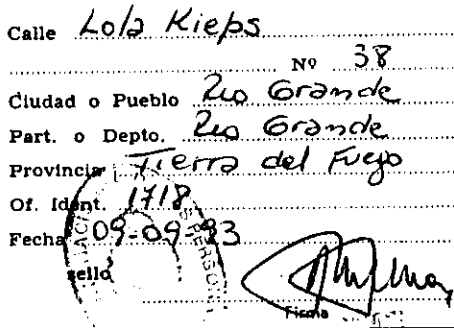 Calle Lola Kieps
Nº 38
Ciudad o Pueblo Rio Grande
Part. o Depto. Rio Grande
Provincia Tierra del Fuego
Of. Ident. 1718
Fecha 09-09-93
sello
Firma